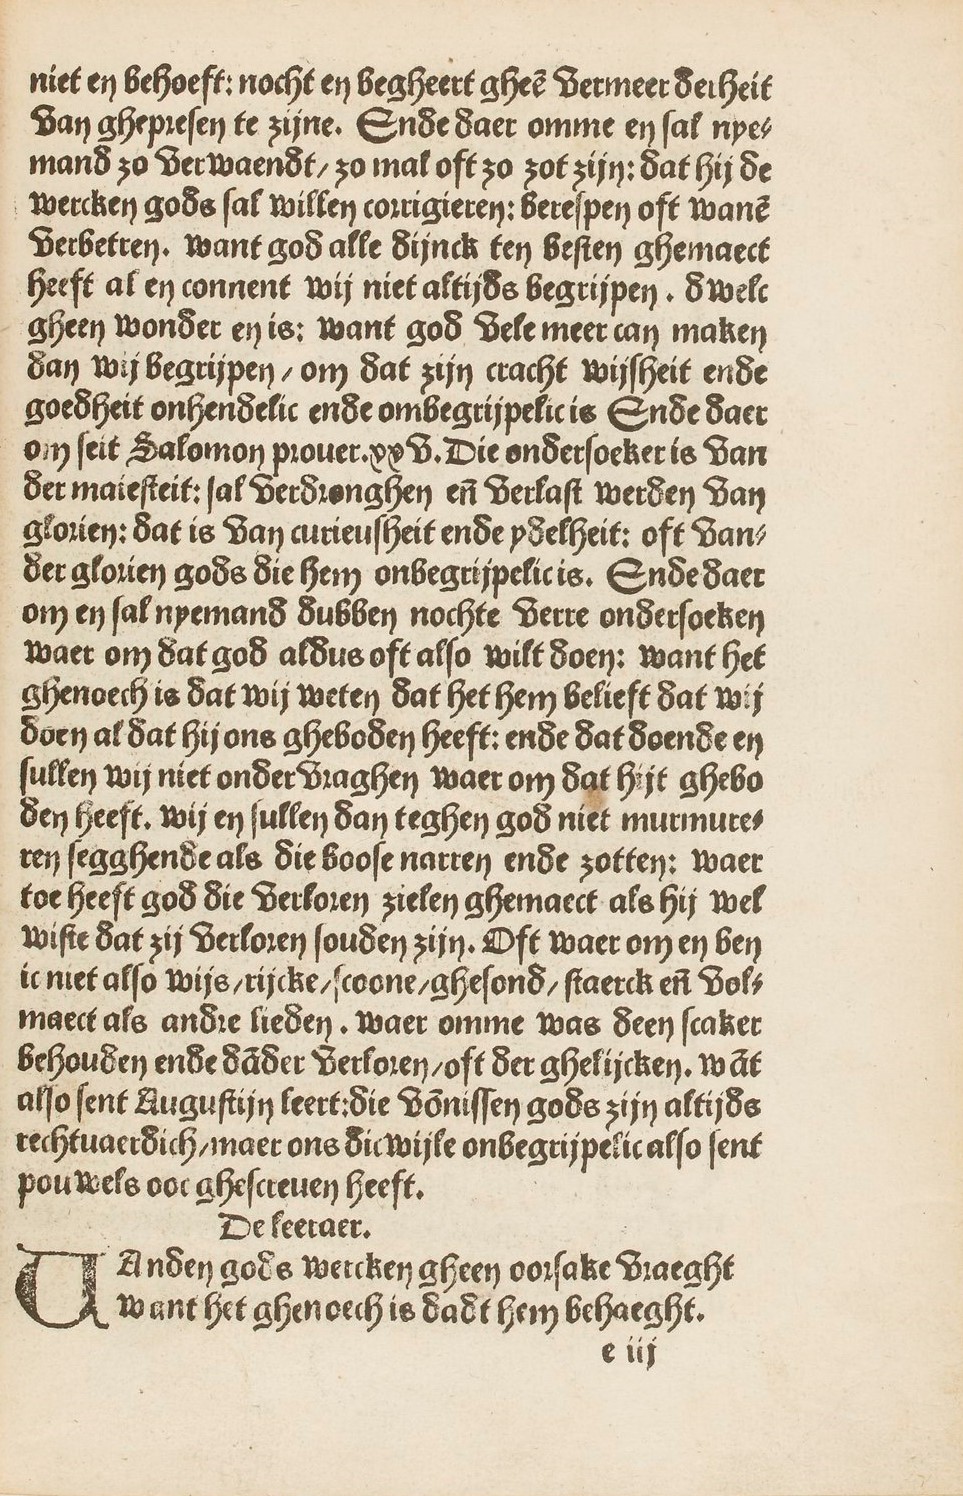 niet en behoeft: nocht en begheert gheē vermeerderheit
van ghepresen te zijne. Ende daer omme en sal nye⸗
mand zo verwaendt/ zo mal oft zo zot zijn: dat hij de
wercken gods sal willen corrigieren: berespen oft wanē
verbetren. want god alle dijnck ten besten ghemaect
heeft al en connent wij niet altijds begrijpen. dwelc
gheen wonder en is: want god vele meer can maken
dan wij begrijpen/ om dat zijn cracht wijsheit ende
goedheit onhendelic ende ombegrijpelic is Ende daer
om seit Salomon prouer.xxv. Die ondersoeker is van
der maiesteit: sal verdronghen eñ verlast werden van
glorien: dat is van curieusheit ende ydelheit: oft van⸗
der glorien gods die hem onbegrijpelic is. Ende daer
om en sal nyemand dubben nochte verre ondersoeken
waer om dat god aldus oft also wilt doen: want het
ghenoech is dat wij weten dat het hem belieft dat wij
doen al dat hij ons gheboden heeft: ende dat doende en
sullen wij niet ondervraghen waer om dat hijt ghebo
den heeft. wij en sullen dan teghen god niet murmure⸗
ren segghende als die boose narren ende zotten: waer
toe heeft god die verloren zielen ghemaect als hij wel
wiste dat zij verloren souden zijn. Oft waer om en ben
ic niet also wijs/rijcke/scoone/ghesond/ staerck eñ vol⸗
maect als andre lieden. waer omme was deen scaker
behouden ende dāder verloren/oft der ghelijcken. wāt
also sent Augustijn leert: die vōnissen gods zijn altijds
rechtuaerdich/maer ons dicwijle onbegrijpelic also sent
pouwels ooc ghescreuen heeft.
De leeraer.
VAnden gods wercken gheen oorsake vraeght
want het ghenoech is dadt hem behaeght.
e iij